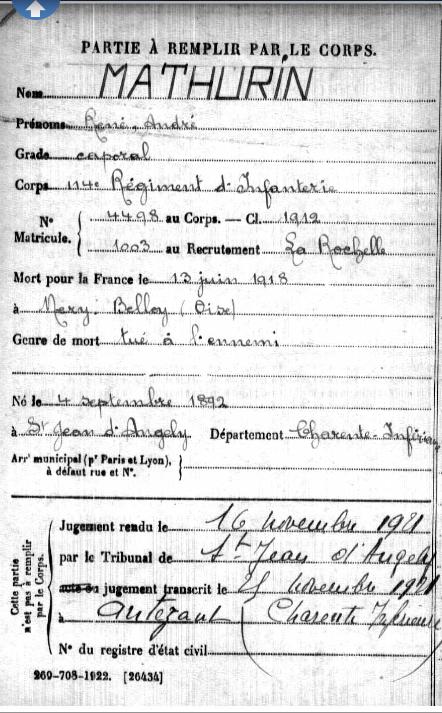 PARTIE À REMPLIR PAR LE CORPS.
Nom MATHURIN
Prénoms René, André
Grade caporal
Corps 114e Régiment d'Infanterie
N° Matricule. { 4498 au Corps. — Cl. 1912
1003 au Recrutement La Rochelle
Mort pour la France le 13 juin 1918
à Mery. Belloy (Oise)
Genre de mort tué à l'ennemi
Né le 4 septembre 1892
à St Jean d'Angely Département Charente-Inférieure
Arrt municipal (pr Paris et Lyon), à défaut rue et N°. }
Cette partie n'est pas à remplir par le Corps.
Jugement rendu le 16 novembre 1921
par le Tribunal de St Jean d'Angely
acte ou jugement transcrit le novembre 1921
à Antezant Charente Inférieure
N° du registre d'état civil
269-708-1922. [26434]